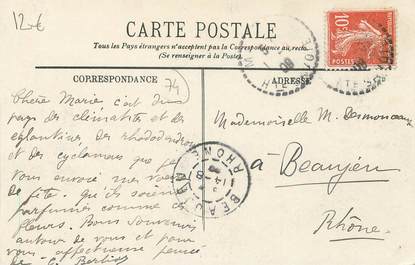 12€
CARTE POSTALE
Tous les Pays étrangers n'acceptent pas la Correspondance au recto.
(Se renseigner à la Poste)
CORRESPONDANCE
ADRESSE
74
10c
POSTES
Chère Marie, c'est du
pays des clématites et des
églantines, des rhododendrons
et des cyclamens que je
vous envoie mes vœux
de fête. qu'ils soient
parfumés comme ces
fleurs. Bons souvenirs
autour de vous et pour
vous affectueuse pensée
Mademoiselle M. Desmonceaux
à Beaujeu
Rhône.
BEAUJEU
RHONE